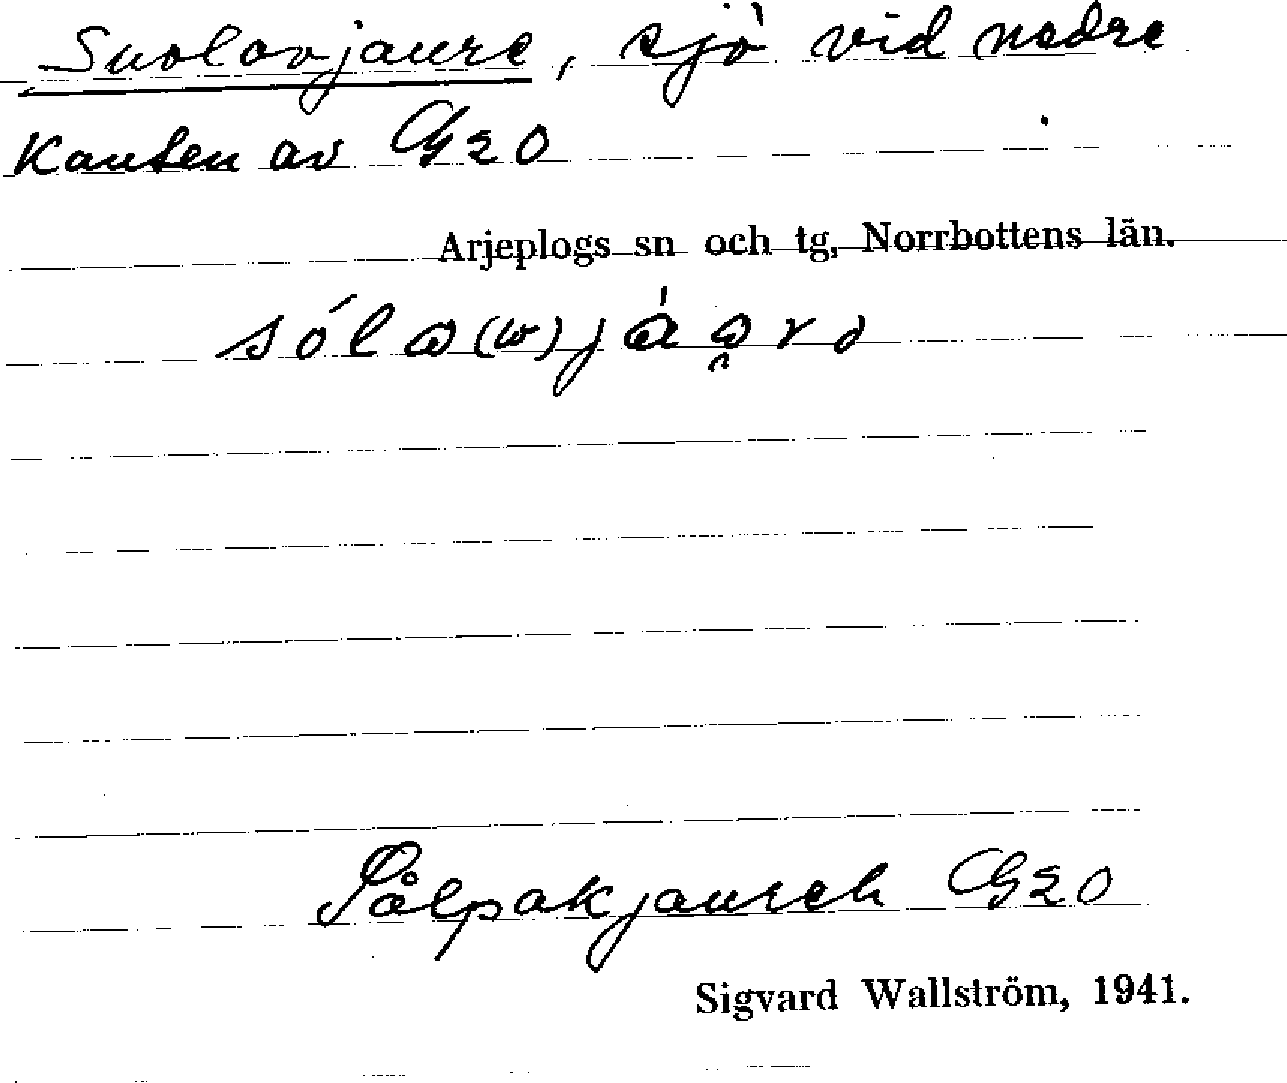 Suolavjaure, sjö vid nedre
Kanten av G20
Arjeplogs sn och tg, Norrbottens län.
Pålpakjaureh G20
Sigvard Wallström, 1941.